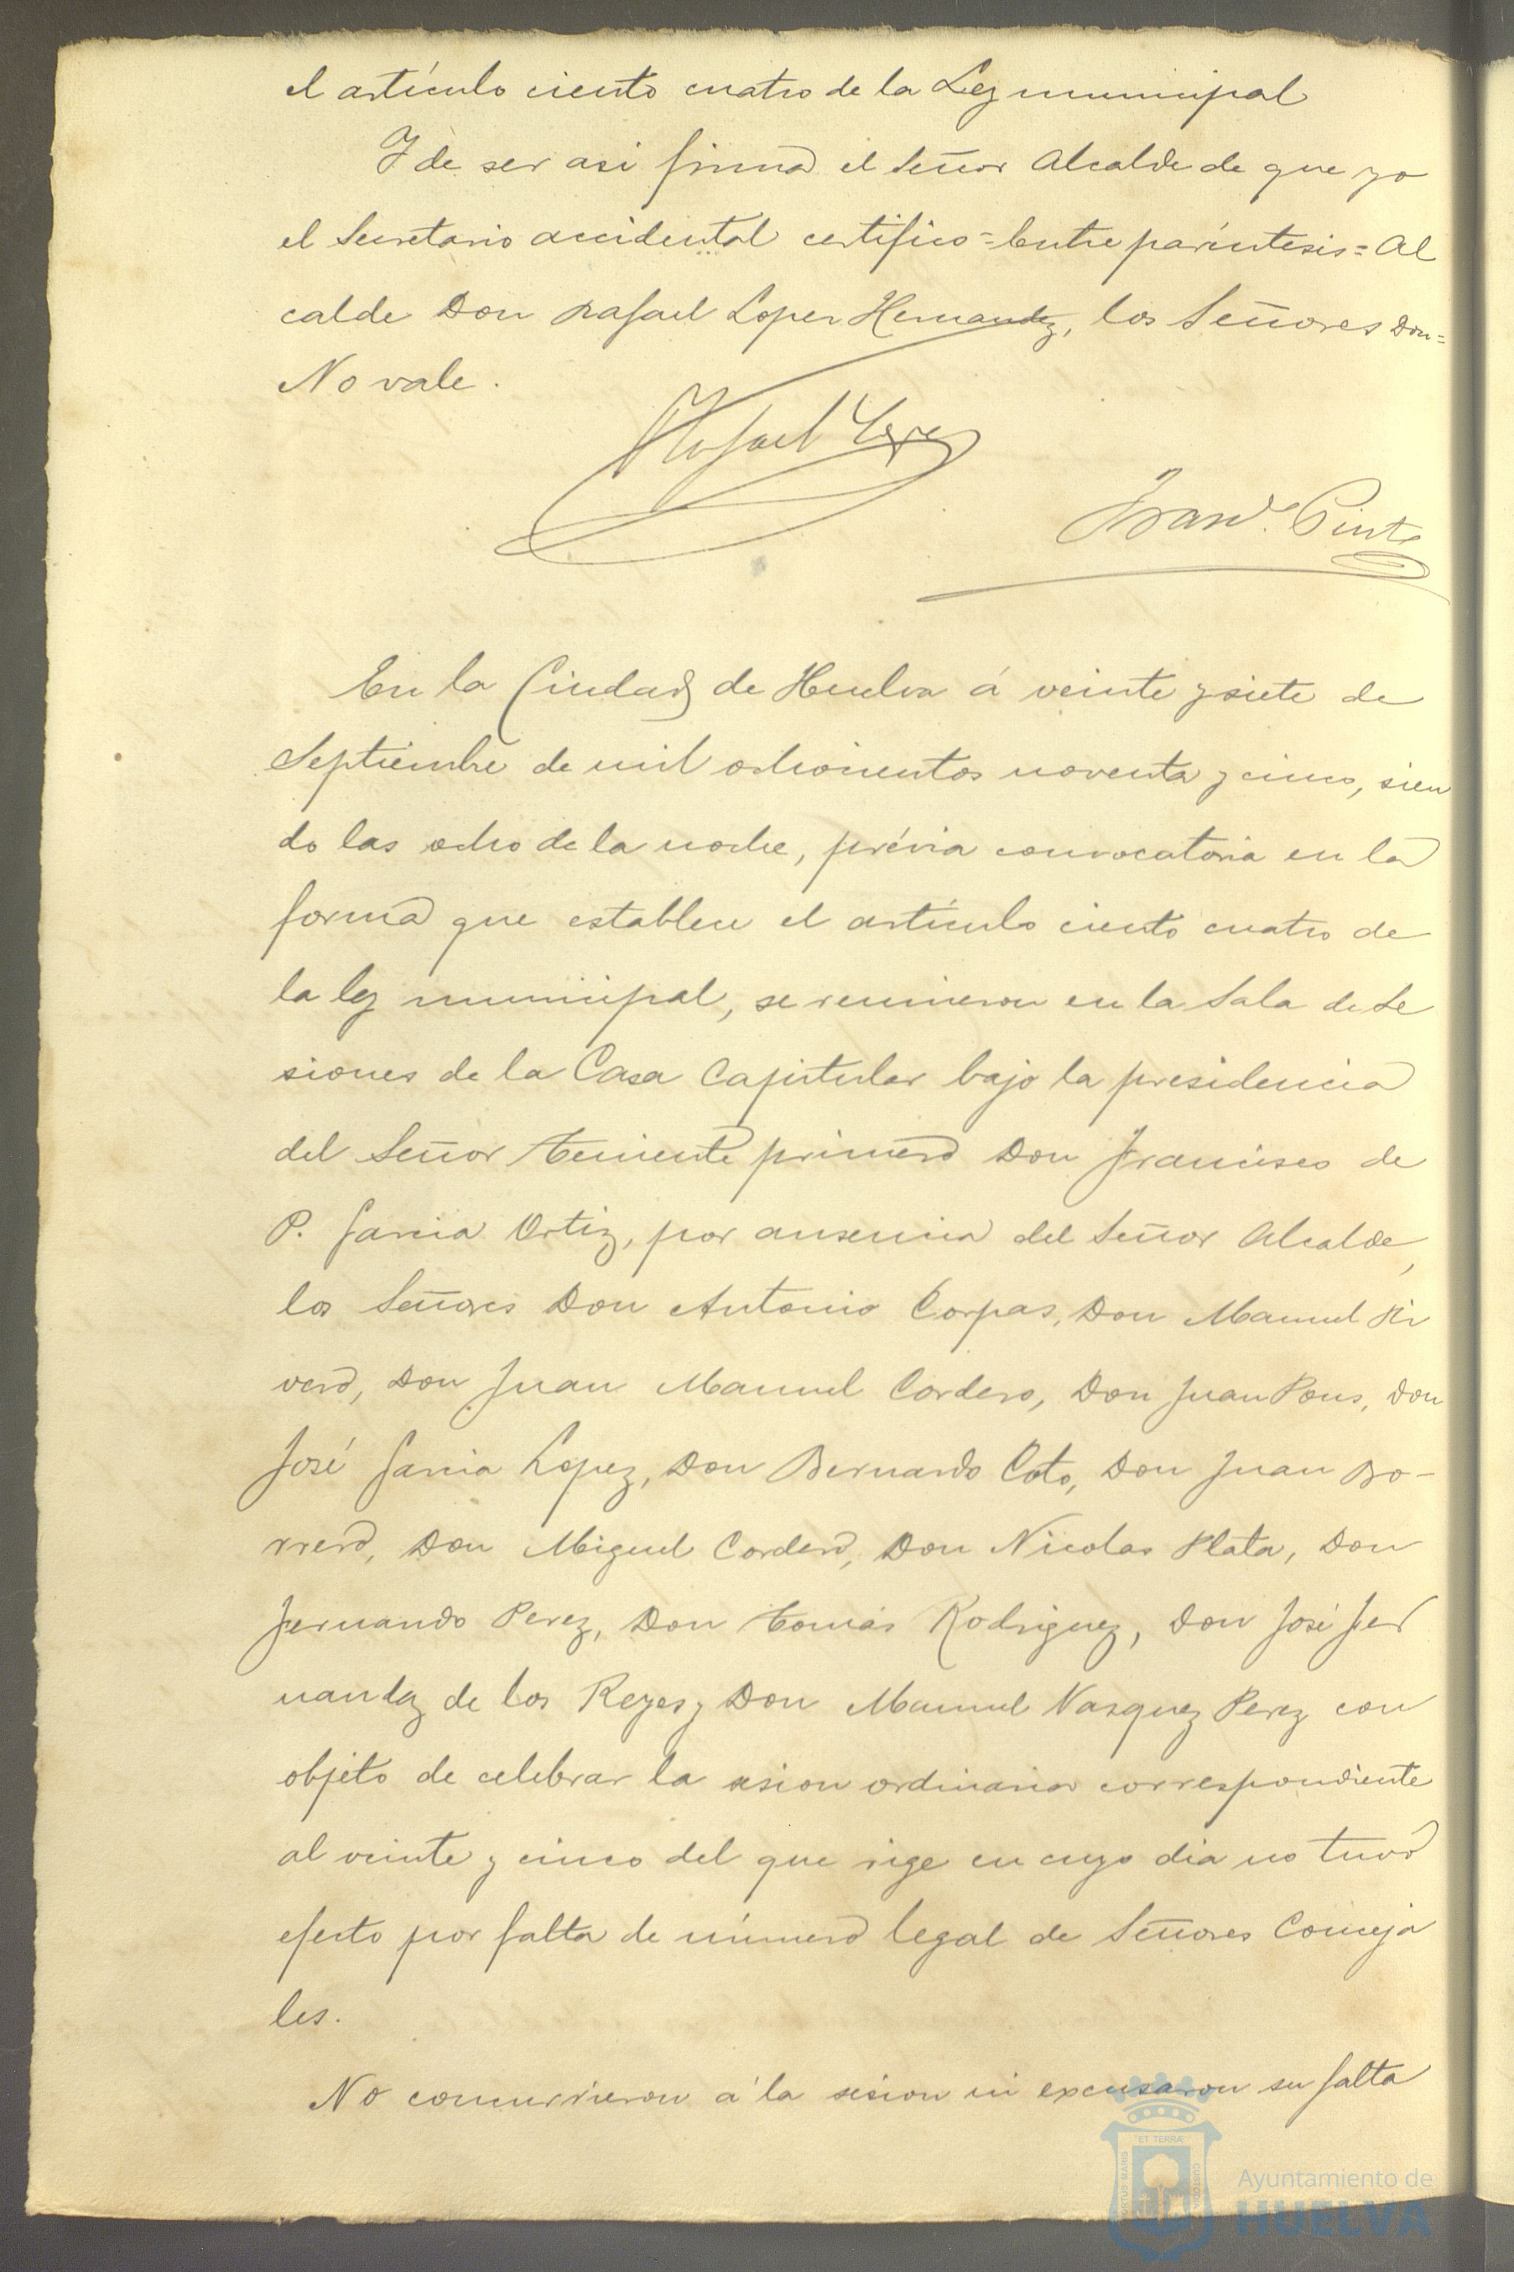 el artículo ciento cuatro de la Ley municipal
Y de ser asi firma el Señor Alcalde de que yo
el Secretario accidental certifico = Entre paréntesis = Al
calde Don Rafael Lopez Hernandez, los Señores Don =
No vale.
Rafael Lopez
Franco. Pinto
En la Ciudad de Huelva á veinte y siete de
Septiembre de mil ochocientos noventa y cinco, sien
do las ocho de la noche, prévia convocatoria en la
forma que establece el artículo ciento cuatro de
la ley municipal, se reunieron en la Sala de Se
siones de la Casa Capitular bajo la presidencia
del Señor Teniente primero Don Francisco de
P. Garcia Ortiz, por ausencia del Señor Alcalde,
los Señores Don Antonio Corpas, Don Manuel Ri
vero, Don Juan Manuel Cordero, Don Juan Pons, Don
José Garcia Lopez, Don Bernardo Coto, Don Juan Bo-
rrero, Don Miguel Cordero, Don Nicolas Plata, Don
Fernando Perez, Don Tomás Rodriguez, Don José Fer
nandez de los Reyes y Don Manuel Vazquez Perez con
objeto de celebrar la sesion ordinaria correspondiente
al veinte y cinco del que rige en cuyo dia no tuvo
efecto por falta de número legal de Señores Conceja
les.
No concurrieron á la sesion ni excusaron su falta
ET TERRA
PORTUS MARIS
CUSTODIA
Ayuntamiento de
HUELVA